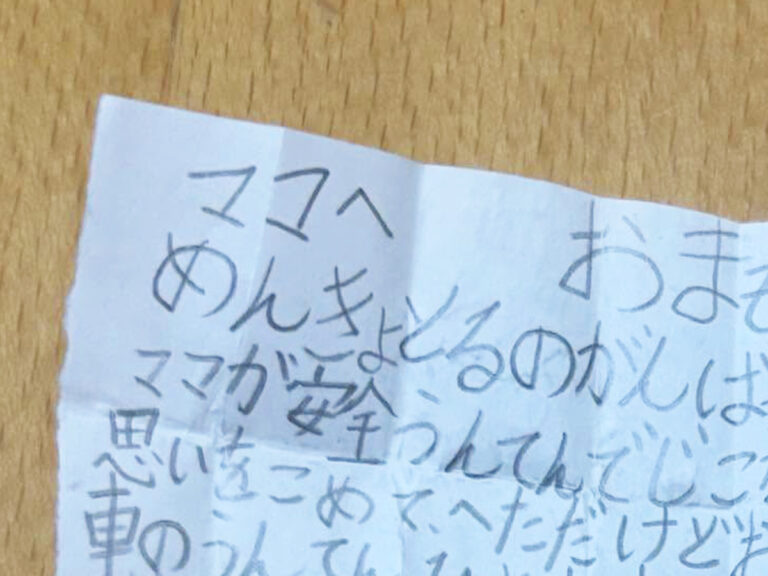 ママへ おまも
めんきょとるのがんば
ママが安全うんてんでじこ
思いをこめて、へただけどお
車のうんてん